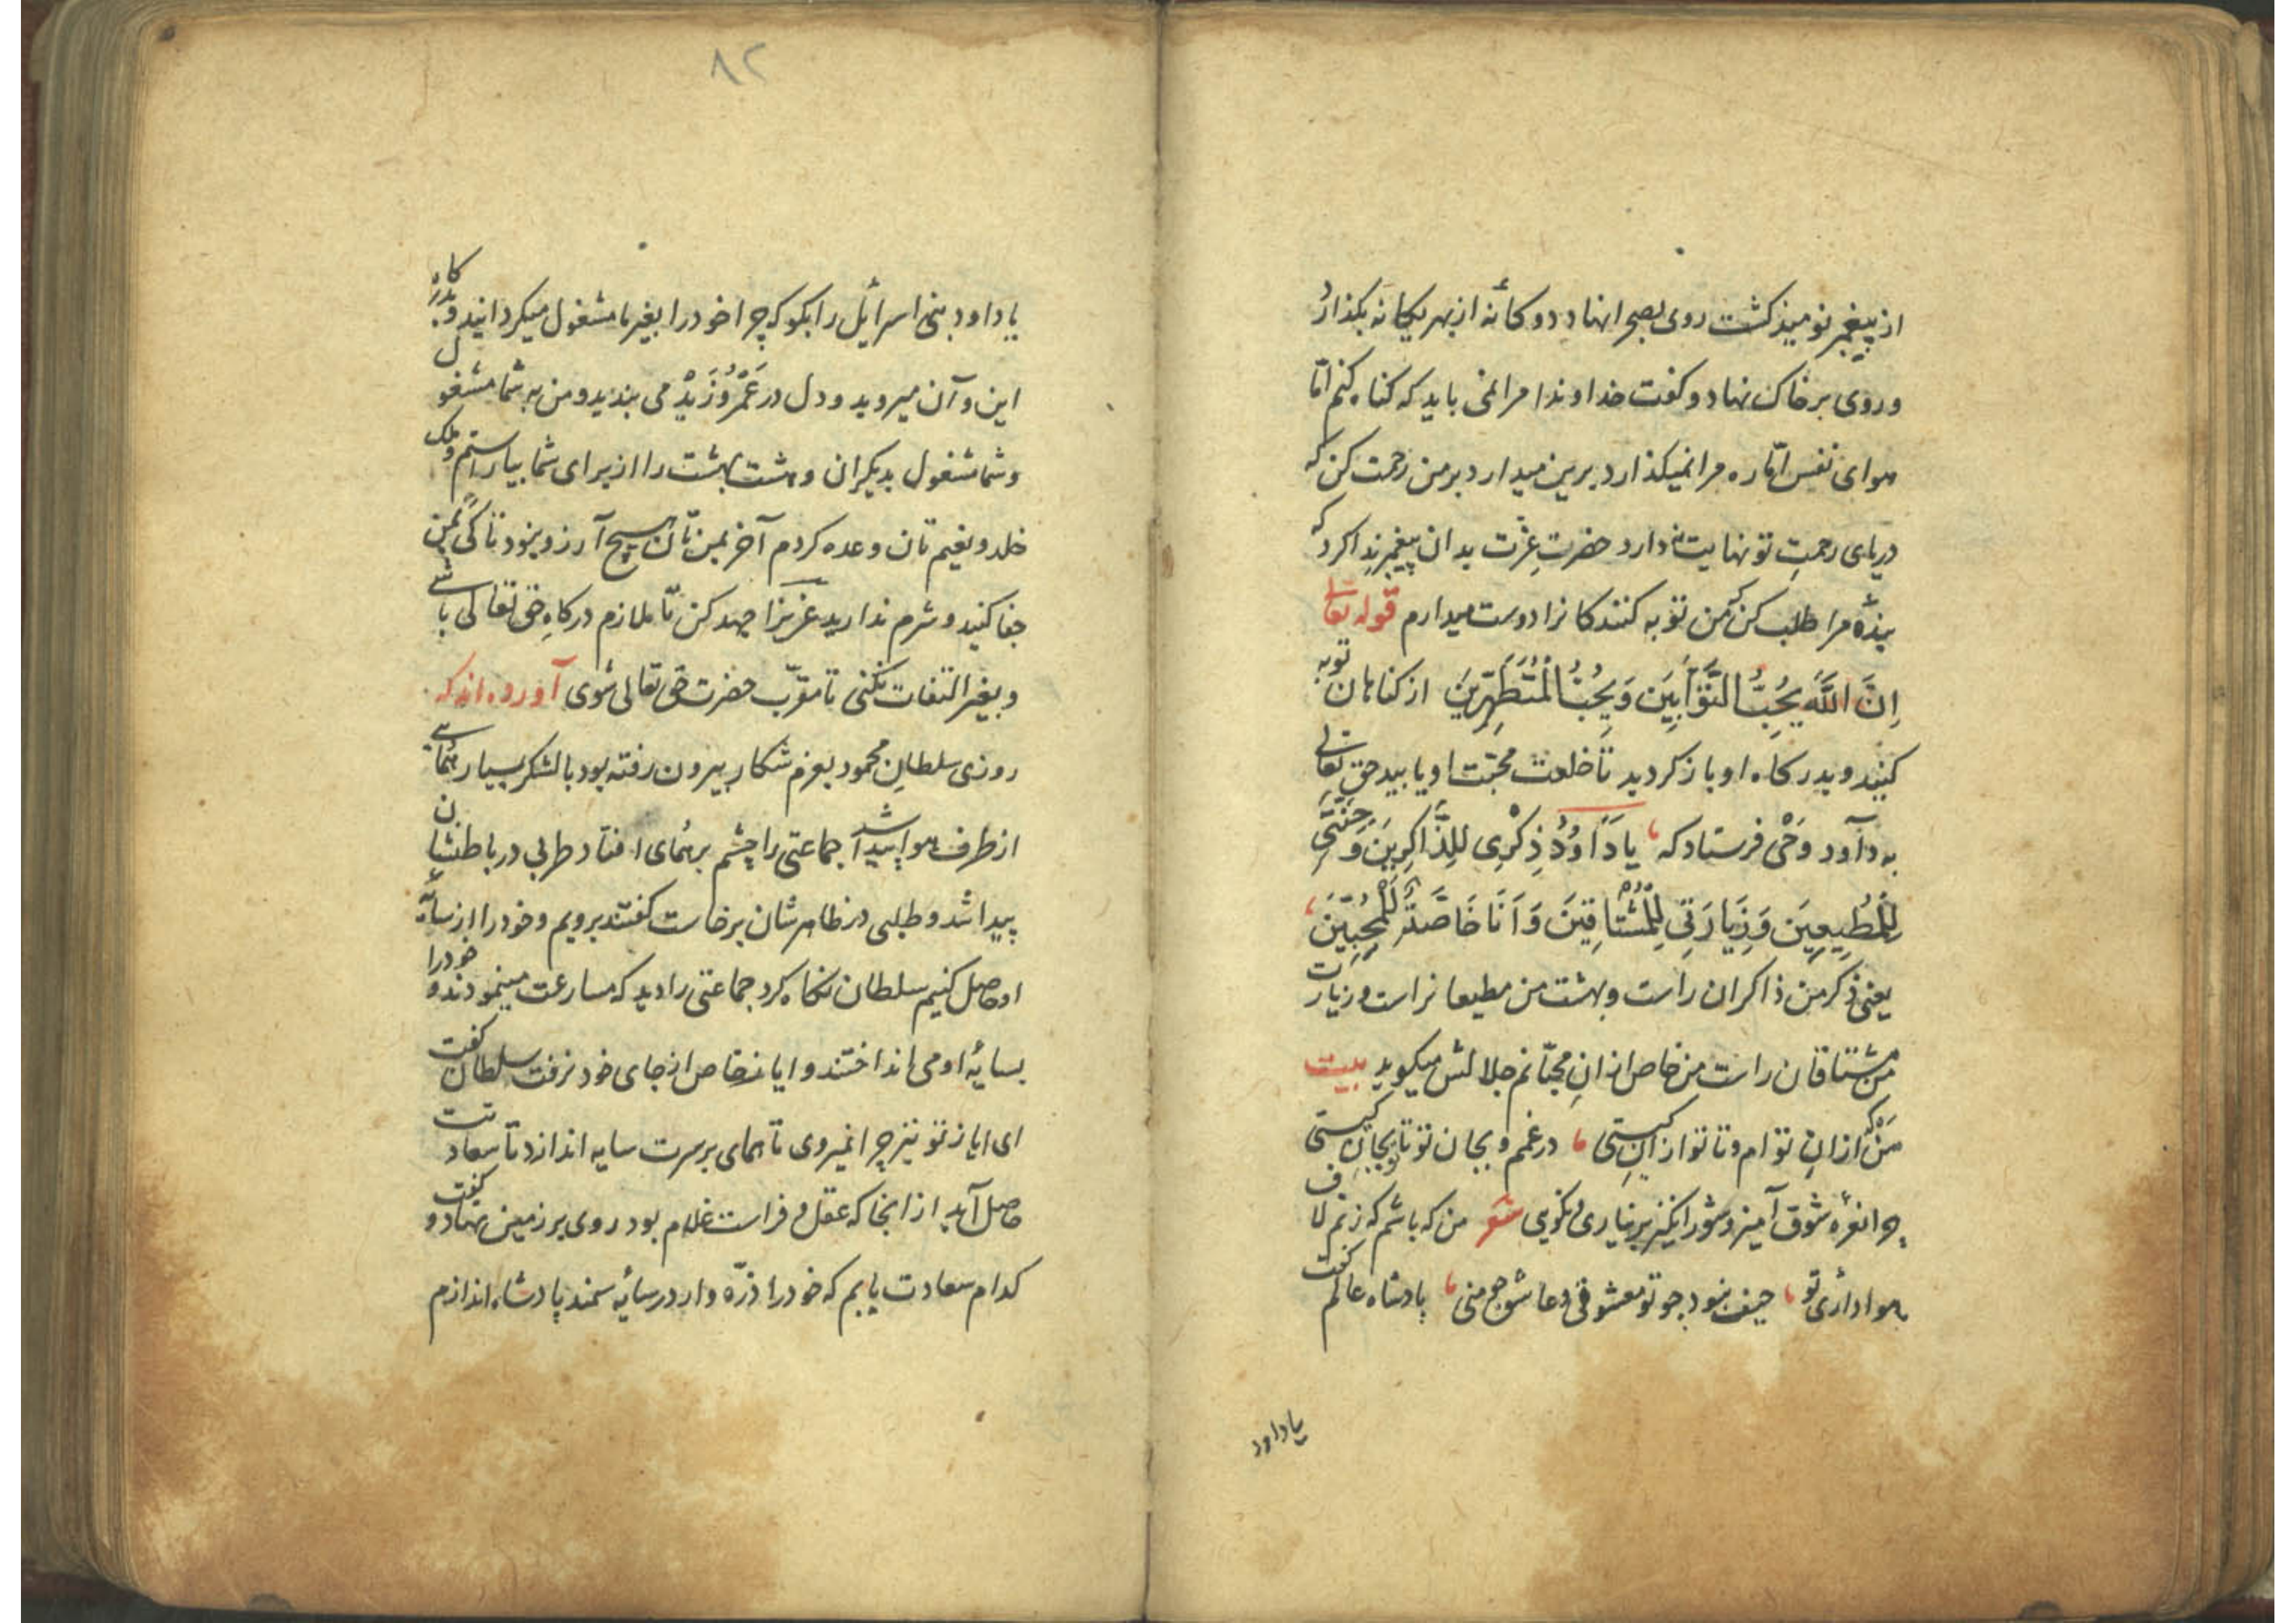 از پیغمبر نومیذ کشت روی بصحرا نهاد دوکانهٔ از بهر یکانه بکذارد
و روی بر خاک نهاد و کفت خداوندا مرا نمی باید که کناه کنم امّا
هوای نفس امّاره مرا نمیکذارد برین میدارد بر من رحمت کن که
دریای رحمتِ تو نهایت ندارد حضرتِ عِزّت بدان پیغمبر ندا کرد که
بندهٔ مرا طلب کن که من توبه کنندکانرا دوست میدارم قوله تعالی
اِنَّ اللَّهَ یُحِبُّ التَّوَّابِینَ وَ یُحِبُّ الْمُتَطَهِّرِینَ از کناهان توبه
کنید و بدرکاه او باز کردید تا خلعت محبّت او یابید حق تعالی
به داود وَحْی فرستاد که یَا دَاوُدُ ذِکْرِی لِلذَّاکِرِینَ وَ جَنَّتِی
لِلْمُطِیعِینَ وَ زِیَارَتِی لِلْمُشْتَاقِینَ وَ اَنَا خَاصَّةٌ لِلْمُحِبِّینَ
یعنی ذکر من ذاکران راست و بهشت من مطیعانراست و زیارت
من مشتاقان راست من خاص از انِ محبّانم جلالش میکوید بیت
من که از انِ توام و تا تو از انِ کیستی در غم و بجان تو تا بجانِ کیستی
چرا نعرهٔ شوق آمیز و شور انکیز بر نیاری و نکویی شعر من که باشم که زنم لاف
هواداری تو حیف نبود چو تو معشوق و عاشق چو منی پادشاه عالم کفت
یا داود
۸۲
یا داود بنی اسرائیل را بکو که چرا خود را بغیر ما مشغول میکردانید و بدرکاه
این و آن میروید و دل در عَمْرُو زَیْدْ می بندید و من به شما مشغول
و شما مشغول بدیکران و هشت بهشت را از برای شما بیاراستم و ملک
خلد و نعیم تان وعده کردم آخر بمن تان هیچ آرزو نبود تا کی بمن
جفا کنید و شرم ندارید عزیزا جهد کن تا ملازم درکاهِ حق تعالی باشی
و بغیر التفات نکنی تا مقرّب حضرت حق تعالی شوی آورده اند که
روزی سلطانِ محمود بعزم شکار بیرون رفته بود با لشکر بسیار همایی
از طرف هوا پیدا شد جماعتی را چشم بر همای افتاد طربی در باطنشان
پیدا شد و طلبی در ظاهرشان برخاست کفتند برویم و خود را از سایهٔ
او حاصل کنیم سلطان نکاه کرد جماعتی را دید که مسارعت مینمودند و خود را
بسایهٔ او می انداختند و ایاز خاص از جای خود نرفت سلطان کفت
ای ایاز تو نیز چرا نمیروی تا همای بر سرت سایه اندازد تا سعادتت
حاصل آید از انجا که عقل و فراست غلام بود روی بر زمین نهاد و کفت
کدام سعادت یابم که خود را ذرّه وار در سایهٔ سمند پادشاه اندازم